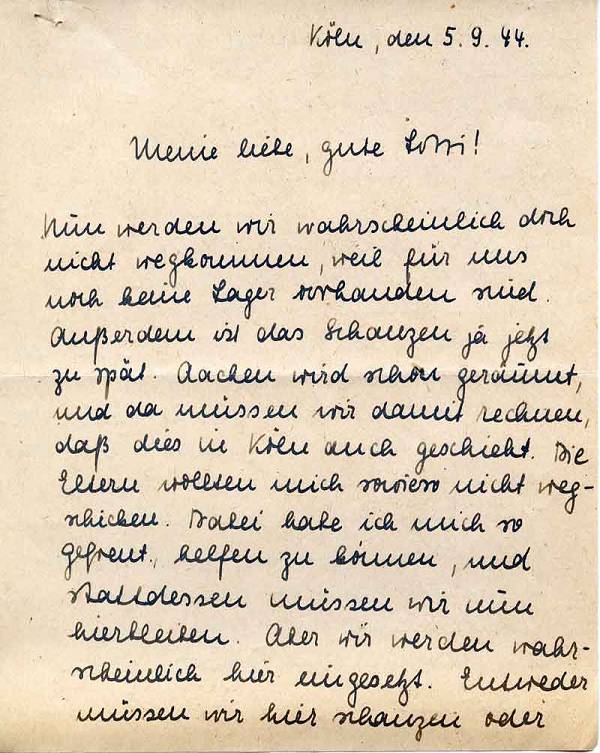 Köln, den 5.9.44.
Meine liebe, gute Lotti!
Nun werden wir wahrscheinlich doch
nicht wegkommen, weil für uns
noch keine Lager vorhanden sind.
Außerdem ist das Schanzen ja jetzt
zu spät. Aachen wird schon geräumt,
und da müssen wir damit rechnen,
daß dies in Köln auch geschieht. Die
Eltern wollten mich sowieso nicht weg-
schicken. Dabei habe ich mich so
gefreut, helfen zu können, und
stattdessen müssen wir nun
hierbleiben. Aber wir werden wahr-
scheinlich hier eingesetzt. Entweder
müssen wir hier schanzen oder